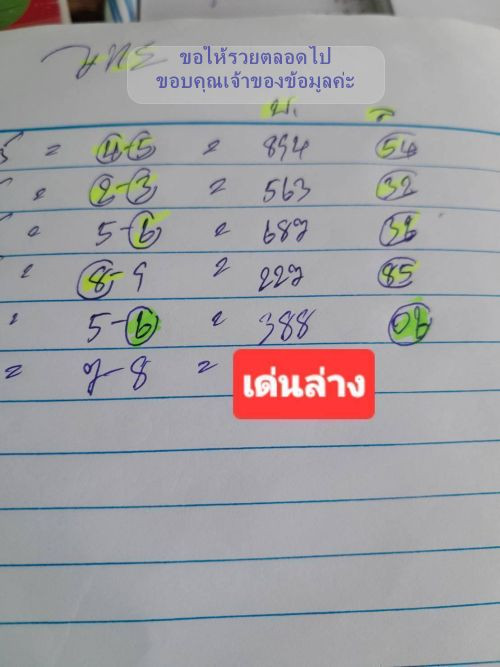 ขอให้รวยตลอดไป
ขอบคุณเจ้าของข้อมูลค่ะ
บ. ล
= 4-5 = 894 54
= 2-3 = 563 32
= 5-6 = 687 36
= 8-9 = 227 85
= 5-6 = 388 06
= 7-8 =
เด่นล่าง